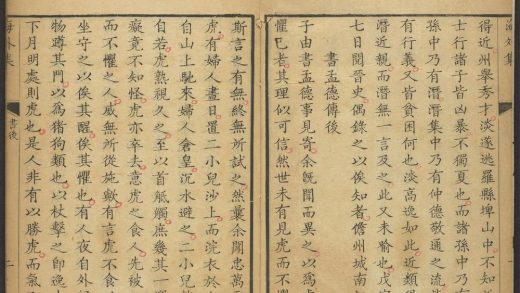 得近州舉秀才淡遂逃羅縣埤山中不知
士行諸子皆凶暴不獨夏也而諸孫中乃
孫中乃有潛潛集中乃有仲德敬通之流
有行義又皆貧困何也淡高逸如此近類
潛近親而潛無一言及之此又未喻也戊
七日閱晉史偶錄之以俟知者儋州城南
書孟德傳後
子由書孟德事見寄余既聞而異之以為虎
懼己者其理似可信然世未有見虎而
斯言之有無終無所試之然曩余聞忠萬
虎有婦人晝日置二小兒沙上而浣衣於
自山上馳來婦人倉皇沉水避之二小兒
自若虎熟視久之至以首觝觸庶幾其一
癡竟不知怪虎亦卒去意虎之食人先
而不懼之人威無所從施歟有言虎不食
坐守之以俟其醒俟其懼也有人夜自外
物蹲其門以為豬狗類也以杖擊之即逸
下月明處則虎也是人非有以勝虎而氣
海外集
書後
二